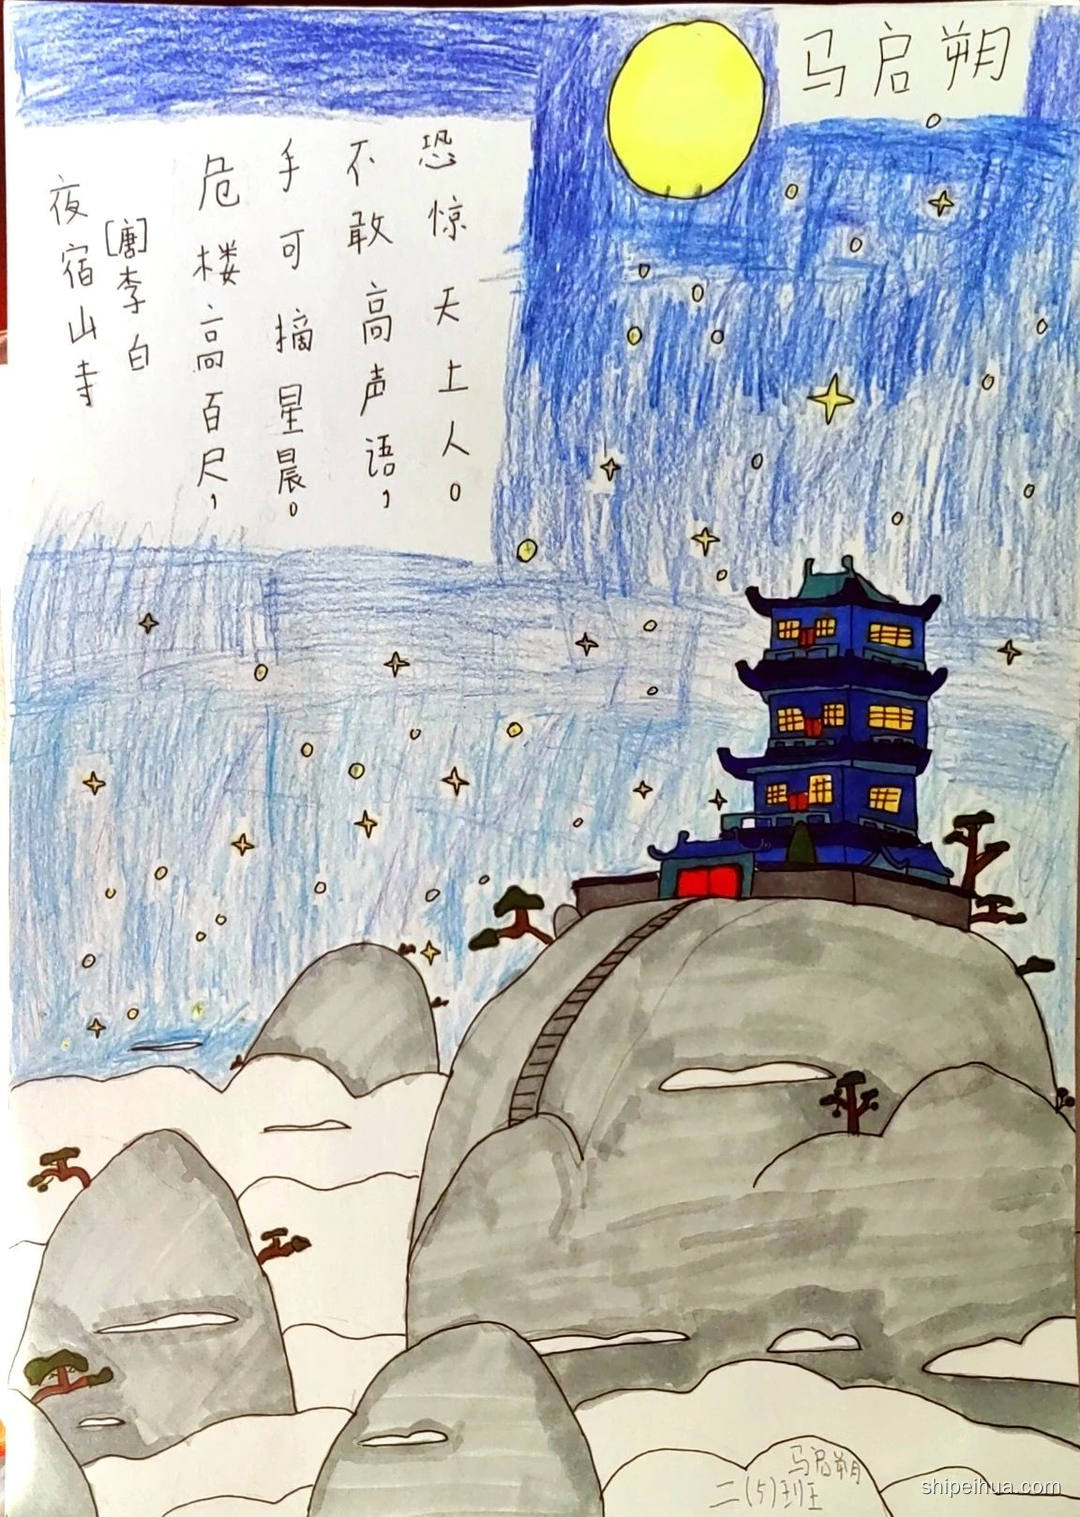 马启朔
夜宿山寺
[唐]李白
危楼高百尺，
手可摘星晨。
不敢高声语，
恐惊天上人。
马启朔
二(5)班
shipeihua.com